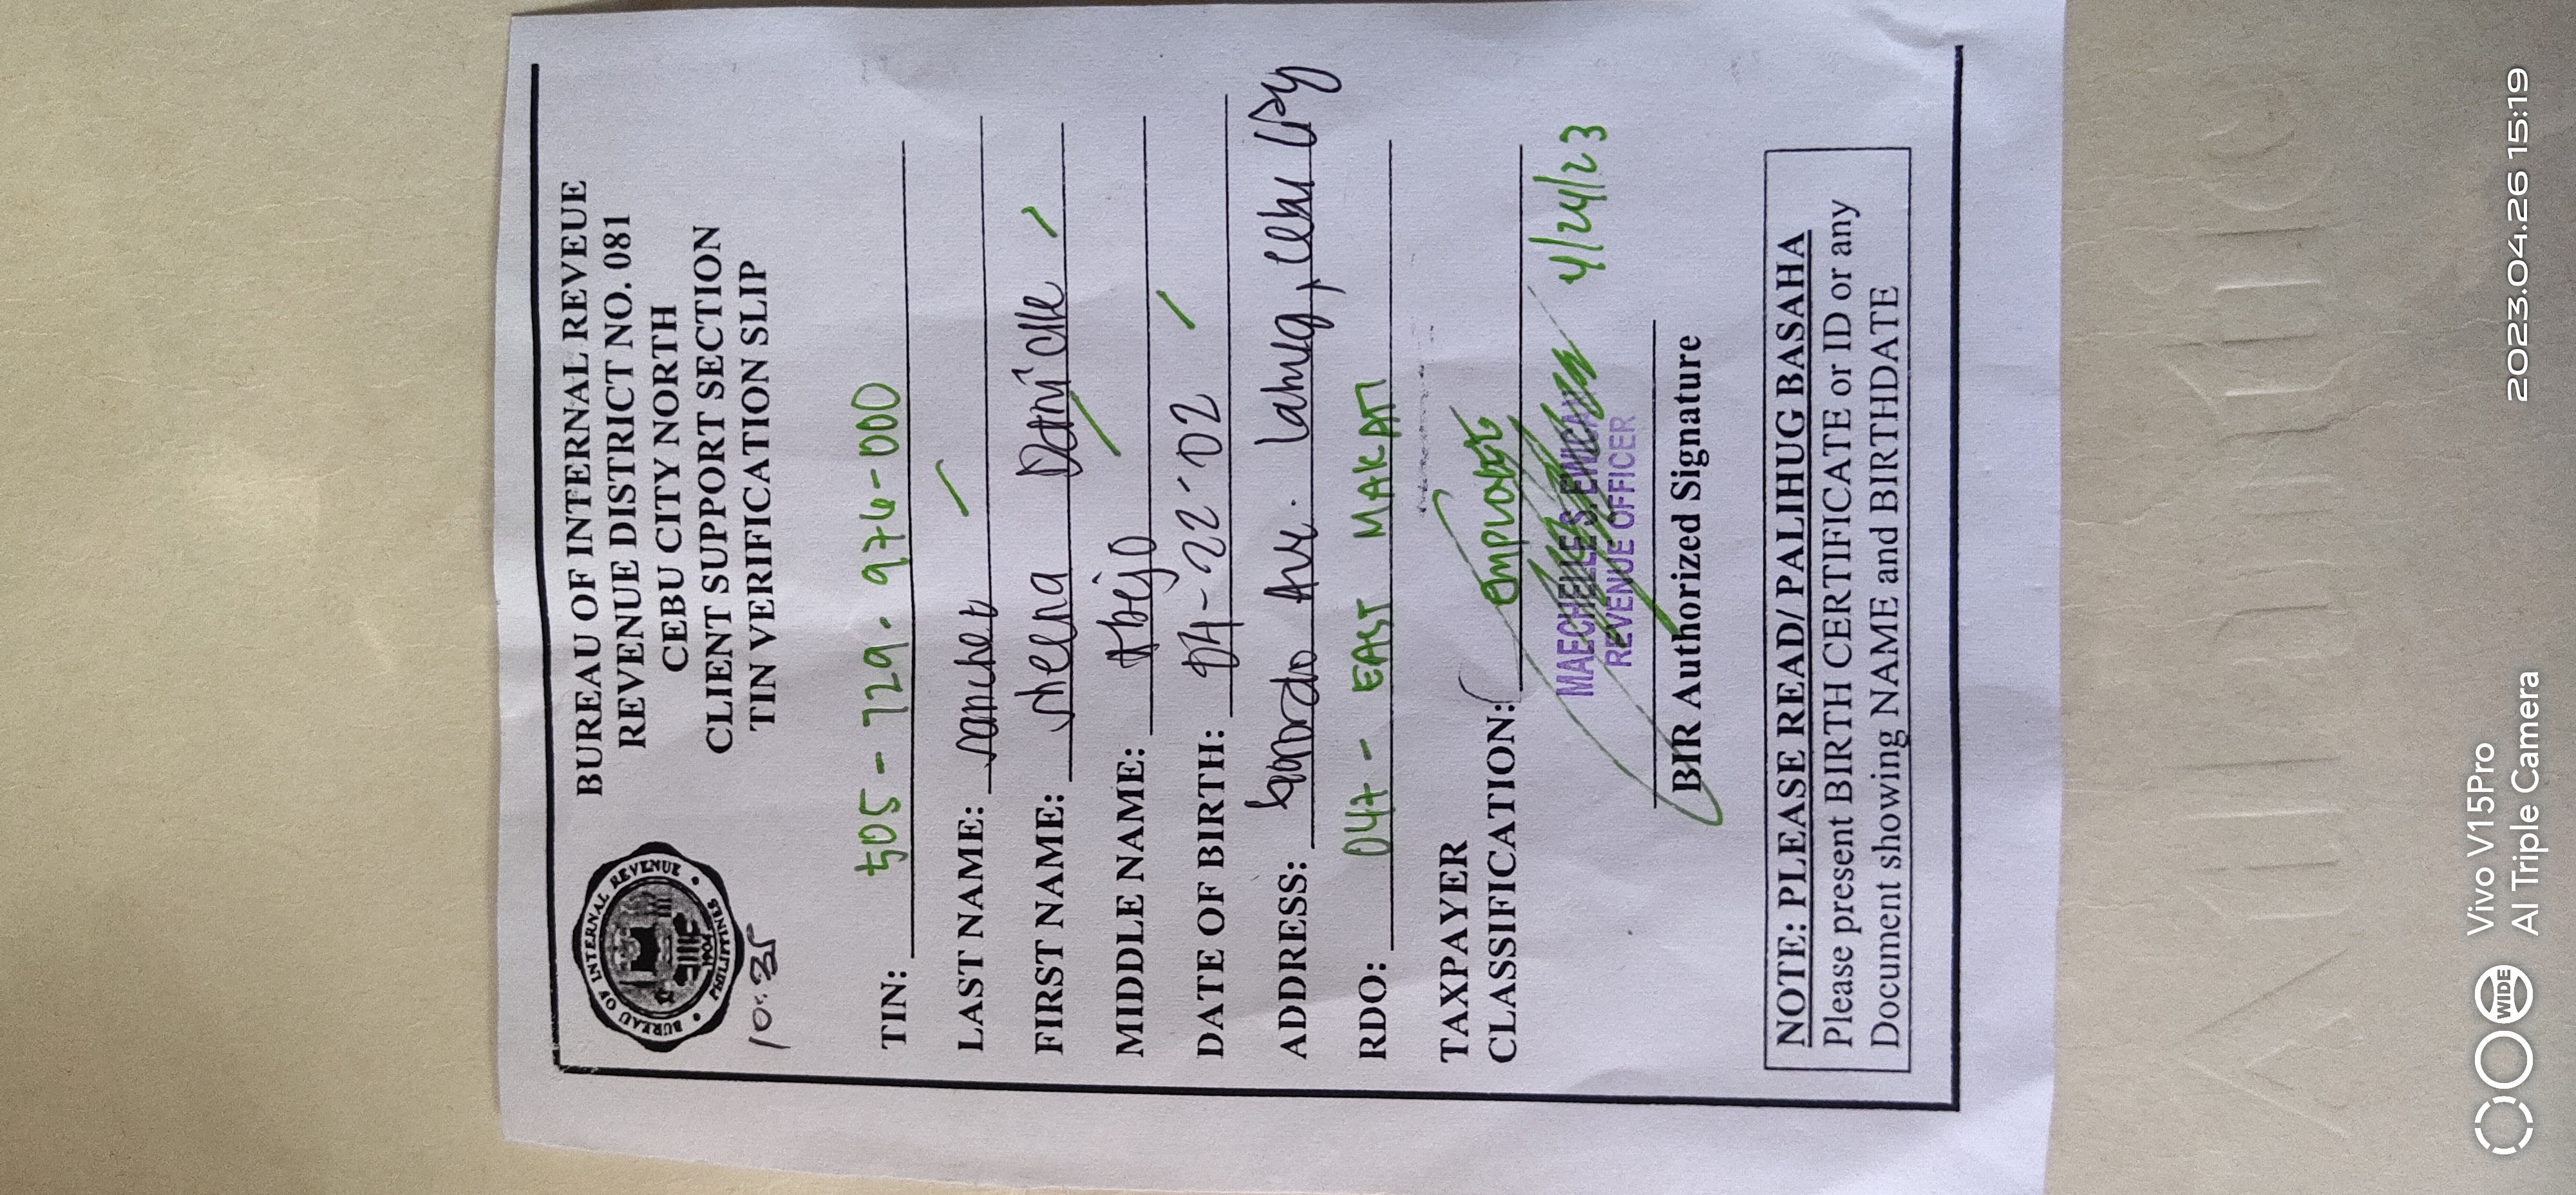 BUREAU OF INTERNAL REVEUE
REVENUE DISTRICT NO. 081
CEBU CITY NORTH
CLIENT SUPPORT SECTION
TIN VERIFICATION SLIP
BUREAU OF INTERNAL REVENUE
PHILIPPINES
1904
10:35
TIN: 505-729-976-000
LAST NAME: Sanchez
FIRST NAME: Sheena Danielle
MIDDLE NAME: Abejo
DATE OF BIRTH: 04-22-02
ADDRESS: Ave. Lahug, Cebu City
RDO: 047 - EAST MAKATI
TAXPAYER
CLASSIFICATION: EMPLOYEE
MAECHELLE S.
REVENUE OFFICER
4/24/23
BIR Authorized Signature
NOTE: PLEASE READ/ PALIHUG BASAHA
Please present BIRTH CERTIFICATE or ID or any
Document showing NAME and BIRTHDATE
WIDE
Vivo V15Pro
AI Triple Camera
2023.04.26 15:19